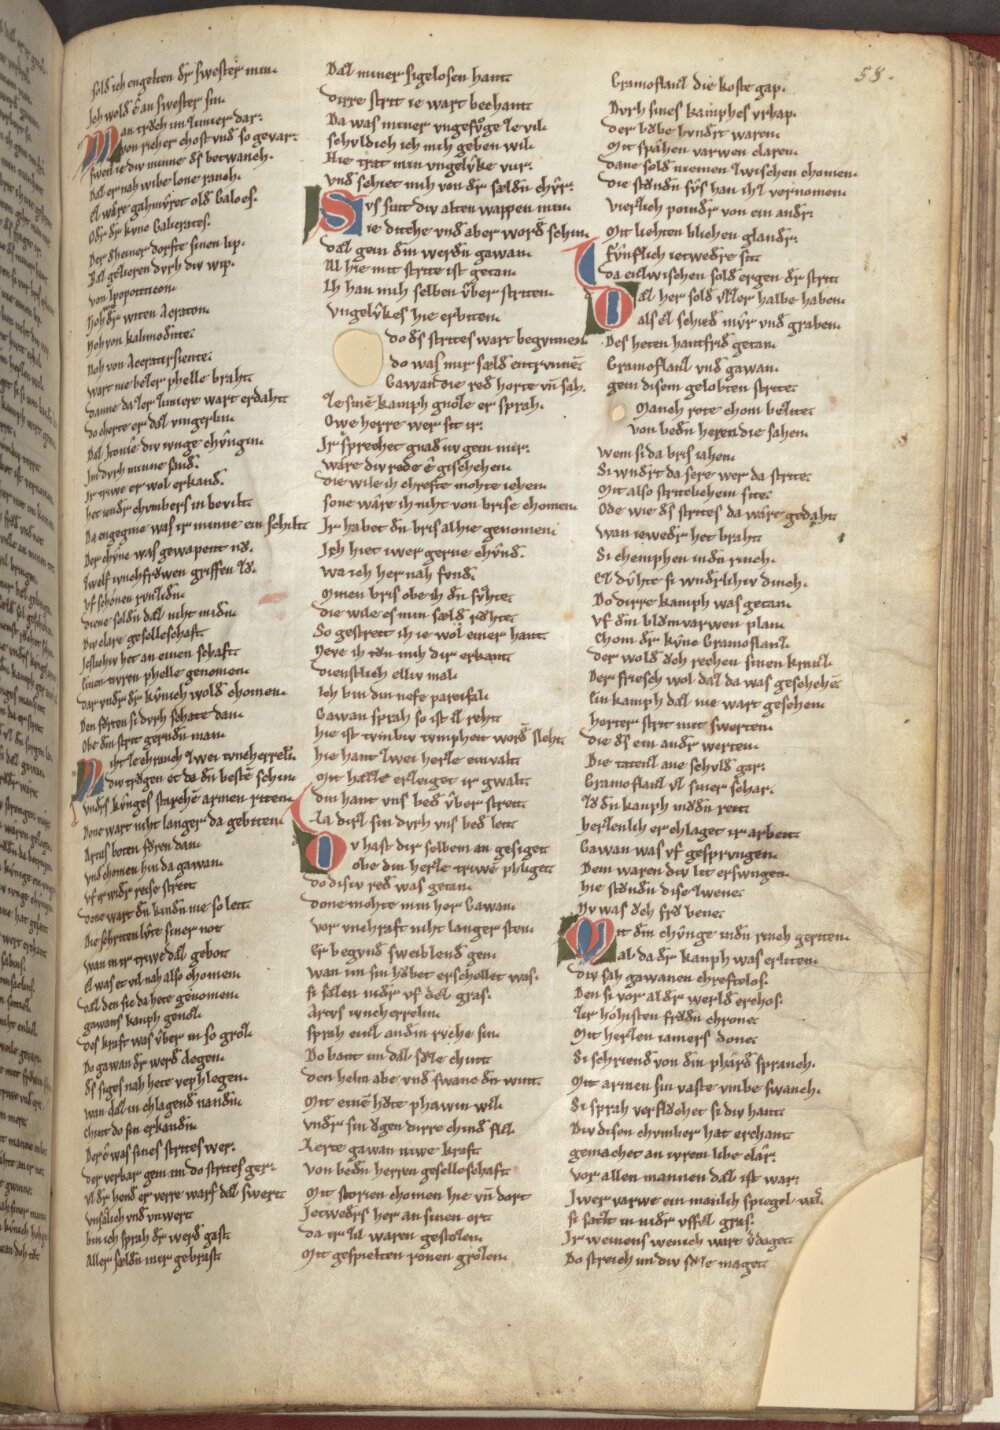 58.
sold ich engelten dr swester min.
Ich wold e an swester sin.
Man troch im zimier dar:
von richer chost vnd so gevar:
swen ie div minne ds betwanch.
Dal er nah wibe lone ranch.
Ez wære gahmvret old Galoes.
Odr dr kyne Gahcrates.
Der dheiner dorfte sinen lip.
Baz gezieren dvrh div wip.
von Ipopotiticon.
Noh vz dr witen Acraton.
Noh von kalomidinte.
Noh von Accatirsiente.
wart nie bezer phelle braht
danne da zer zimiere wart erdaht
do cherte er daz vingerlin.
Daz Itonie div ivnge chvngin.
Im dvrh minne sand.
Ir triwe er wol erkand.
het vndr chvmbers in bevilt
Da engegine was ir minne ein schilt
Der chvne was gewapent nv.
zwelf ivnchfrowen griffen zv.
vf schonen rvnzidin
diene soldn daz niht midin
Div clare geselleschaft
Iesliche het an einen schaft
Einen tvren phelle genomen.
dar vndr dr kvnich wold chomen.
Den forten si dvrh schate dan
Obe din strit gerndn man
Niht ze chranch zwei ivncherrelin
div trogen et da dn besten schin
vndrs kvnges starchen armen riten.
Done wart niht langer da gebiten
Artus boten foren dan
vnd chomen hin da gawan.
vf er widr reise streit
done wart dn kindn nie so leit
Die schriten lvte siner not
wan in ir triwe daz gebot
ez was et vil nah also chomen
daz den sic da hete genomen.
gawans kanph genoz.
des kraft was vber in so groz
Do gawan dr werd degen.
ds siges nah hete vephlegen.
wan daz in chlagend nandin.
chint do sin erkandin.
Der e was sines strites wer.
der verbar gem im do strites ger:
vz dr hend er verre warf daz swert
vnsalich vnd vnwert
bin ich sprah dr werd gast.
Aller sældn mir gebrast
Daz miner sigelosen hant
dirre strit ie wart bechant
Da was miner vngefvge ze vil
schvldich ich mih geben wil.
Hie trat min vngelvke vur.
vnd schiet mih von dr sældn chvr:
Svs sint div alten wappen min.
Die diche vnd aber word schin.
daz gein dim werdn gawan.
Al hie mit strite ist getan.
Ih han mih selben vber striten
vngelvkes hie erbiten.
do ds strites wart begvnnen
do was mir sæld entrvnnen
Gawan die red horte vnd sah.
ze sinem kamph gnoze er sprah.
Owe herre wer sit ir:
Ir sprechet gnad ur gem mir:
wære div rede e gischehen.
die wile ih chrefte mohte iehen.
sone wære ih niht von brise chomen.
Ir habet dn bris alhie genomen.
Ich hiet iwer gerne chvnd.
wa ich her nah fvnd.
Minen bris obe ih dn svhte.
die wile es min sæld rvhte.
So gestreit ih ie wol einer hant
Neve ih tvn mih dir erkant
dienstlich elliv mal.
Ich bin din nefe parcifal.
Gawan sprah so ist ez reht
hie ist trimbiv tvmpheit word sleht
hie hant zwei herze einvalt
mit hazze erzeiget ir gwalt
din hant vns bed vber streit
La dirz sin dvrh vns bed leit
Dv hast dir selbem an gesiget
obe din herze triwen phliget
do disiv red was getan.
done mohte min her Gawan.
vor vnchraft niht langer sten.
Er begvnd sweiblend gen.
wan im sin hobet erschellet was.
si salen nidr vf dez gras.
Artvs ivncherrelin.
sprah einz andin ryche sin.
Do bant im daz sveze chint
den helm abe vnd swane dn wint.
Mit einem hvte phawin wiz.
vndr sin ogen dirre chind fliz.
Lerte gawan niwe kraft
von bedn herren geselleschaft
Mit storien chomen hie vnd dort
Ietweders her an sinen ort
da ir zil waren gestozen.
Mit gespielten ronen grozen.
Gramoflanz die koste gap.
Dvrh sines kamphes vrhap.
der bovme hvndrt waren.
Mit spæhen varwen claren.
dane sold niemen zwischen chomen.
die stvndn svs han ihz vernomen.
vierzich poindr von ein andr:
Mit liehten blichen glandr.
Fvnfzich ietwedre sit
da enzwischen sold ergen dr strit
Daz her sold vzzer halbe haben.
als ez schied mvr vnd graben.
Des heten hantfrid getan.
Gramoflanz vnd gawan.
gem disem gelobten strite:
Manch rote chom bezite:
von bedn heren die sahen.
wem si da bris iahen.
Si wndrt da sere wer da strite:
Mit also stritechehem site:
Ode wie ds strites da wære gedaht
wan iewedr het braht
Si chemphen indn rinch.
Ez dvhte si wndrlichiv dinch.
Do dirre kamph was getan.
vf dim blvmvarwen plan.
Chom dr kyne Gramoflanz.
der wold och rechen sinen kranz.
Der friesch wol daz da was geschehen
Ein kamph daz nie wart gesehen.
herter strit mit swerten.
die ds ein andr werten.
Die tatenz ane schvld gar:
Gramoflanz vz siner schar.
zv dn kanph mvdn reit
herzenlich er chlaget ir arbeit
Gawan was vf gesprvngen.
Dem waren div lit erswngen.
hie stvndn dise zwene:
Nv was och fro bene:
Mit dim chvnge indn rinch geriten.
al da dr kanph was erliten.
div sah gawanen chreftelos.
Den si vor al dr werld erchos.
zir hohisten frovdn chrone:
Mit herzen iamers done:
Si schriend von dim phard sprach.
Mit armen sin vaste vmbe swanch.
Si sprah verflvchet si div hant
Div disen chvmber hat erchant
gemachet an ivrem libe clar.
vor allen mannen daz ist war:
Iwer varwe ein manlih spiegel was
si satzt in nidr vffez gras.
Ir weinens wenich wart vdaget.
Do streich im div sveze maget